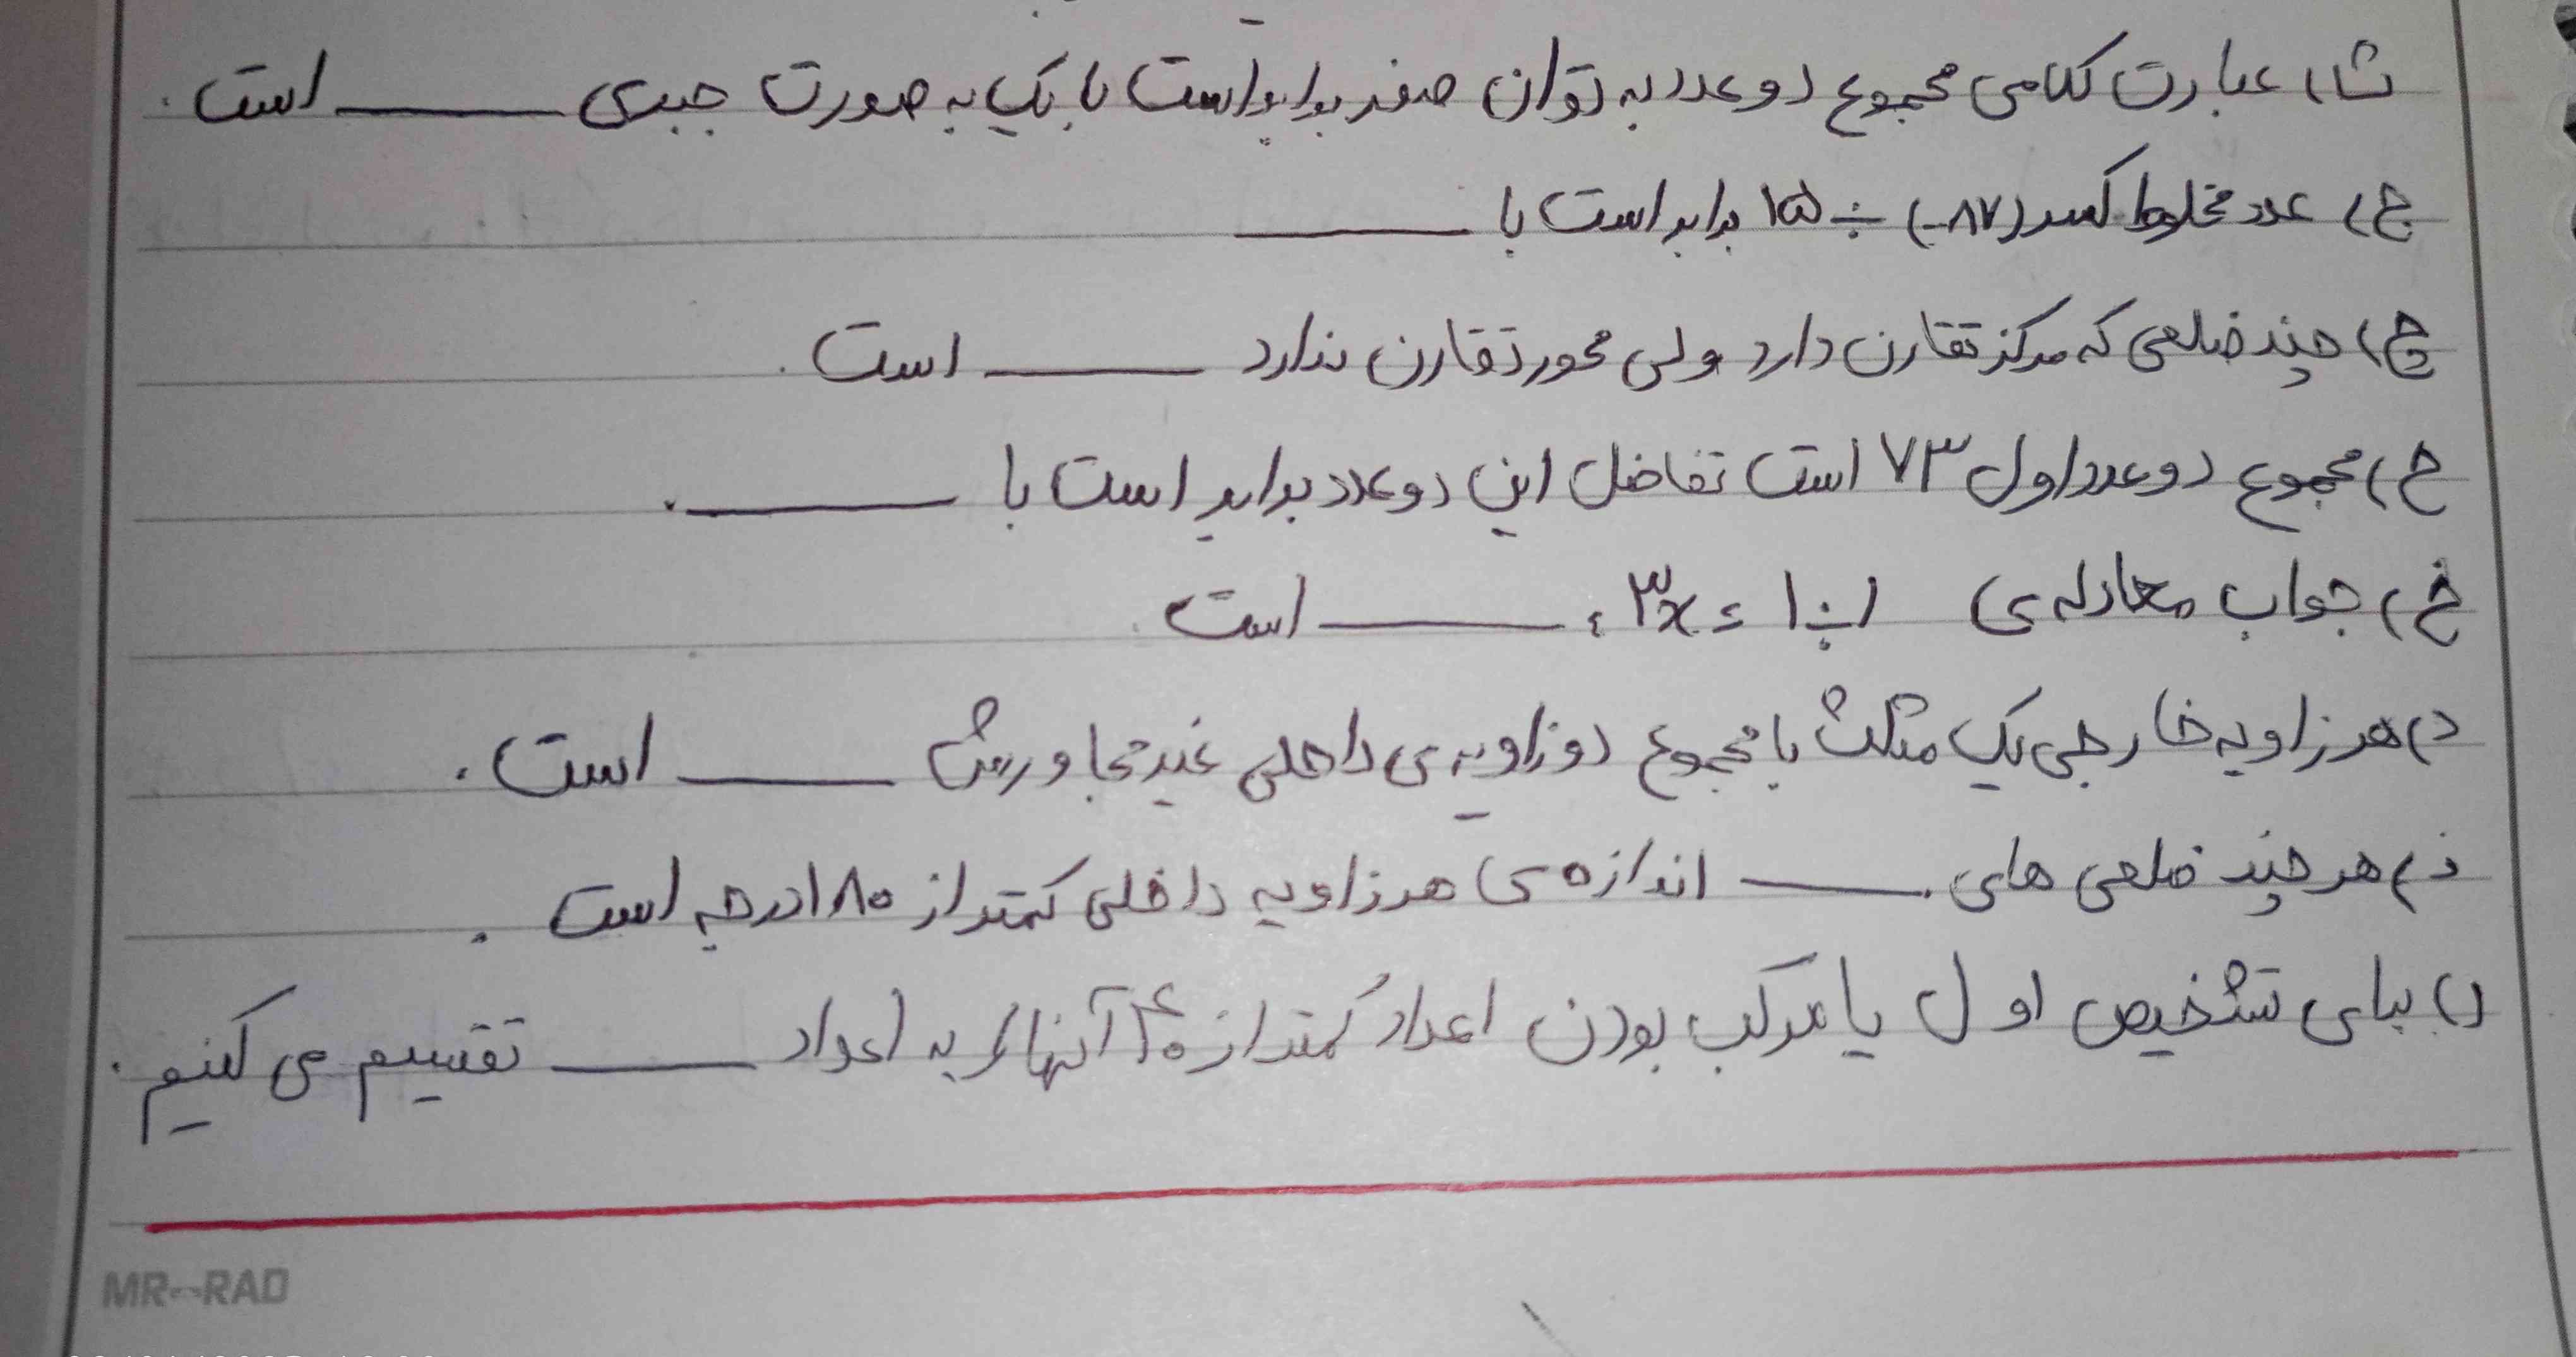 ث) عبارت کلامی مجموع دو عدد به توان صفر برابر است با یک به صورت جبری ــــــ است.
ج) عدد مخلوط کسر (-۸۷) ÷ ۱۵ برابر است با ــــــ
چ) چند ضلعی که مرکز تقارن دارد ولی محور تقارن ندارد ــــــ است.
ح) مجموع دو عدد اول ۷۳ است تفاضل این دو عدد برابر است با ــــــ.
خ) جواب معادله ی ۳x = ۱ ، ــــــ است
د) هر زاویه خارجی یک مثلث با مجموع دو زاویه ی داخلی غیر مجاورش ــــــ است.
ذ) هر چند ضلعی های ــــــ اندازه ی هر زاویه داخلی کمتر از ۱۸۰ درجه است.
ر) برای تشخیص اول یا مرکب بودن اعداد کمتر از آنها را به اعداد ــــــ تقسیم می کنیم.
MR-RAD